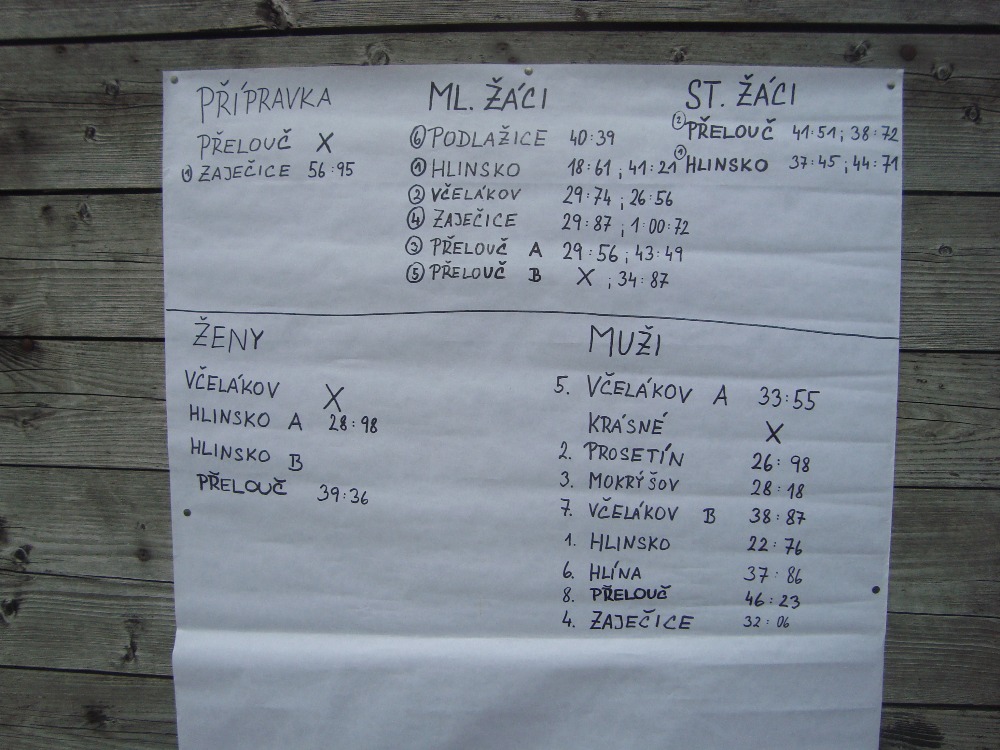 PŘÍPRAVKA
PŘELOUČ X
① ZAJEČICE 56:95
ML. ŽÁCI
⑥ PODLAŽICE 40:39
① HLINSKO 18:61 ; 41:21
② VČELÁKOV 29:74 ; 26:56
④ ZAJEČICE 29:87 ; 1:00:72
③ PŘELOUČ A 29:56 ; 43:49
⑤ PŘELOUČ B X ; 34:87
ST. ŽÁCI
② PŘELOUČ 41:51 ; 38:72
① HLINSKO 37:45 ; 44:71
ŽENY
VČELÁKOV X
HLINSKO A 28:98
HLINSKO B
PŘELOUČ 39:36
MUŽI
5. VČELÁKOV A 33:55
KRÁSNÉ X
2. PROSETÍN 26:98
3. MOKRÝŠOV 28:18
7. VČELÁKOV B 38:87
1. HLINSKO 22:76
6. HLÍNA 37:86
8. PŘELOUČ 46:23
4. ZAJEČICE 32:06